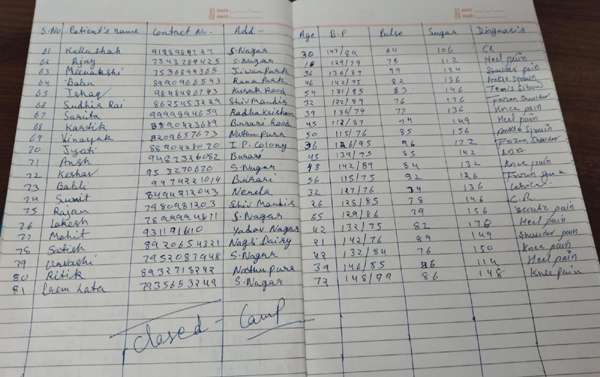 S.No Patient's name Contact No. Add- Age B.P Pulse Sugar Diagnosis
61 Kallushah S.Nagar 30 64 106 CR
62 Ajay 7343289425 S.Nagar 129/79 78 112 Heel pain
63 Meenakshi 7536899365 Jivan Park 36 136/87 99 124 Shoulder pain
64 Babu 8990966543 Rama Park 46 142/75 82 136 Ankle Sprain
65 Ishaq Kusak Road 54 131/85 83 146 Tennis Elbow
66 Sudhir Rai 8625453289 Shiv Mandir 32 132/89 76 176 Frozen Shoulder
67 Sarita 9999894659 Radhakrishan 39 136/79 77 136 Knee pain
68 Kartik Burari Road 45 149 Heel pain
69 Vinayak 8209657673 Nathupura 50 115/76 85 156 Ankle Sprain
70 Jyoti 8890428070 I.P. Colony 36 126/95 96 172 Frozen Shoulder
71 Ansh 9487326082 Burari 45 139/75 85 142
72 Keshav S.Nagar 48 142/89 84 132 Knee pain
73 Babli 9474221014 Burari 56 115/75 92 126 Frozen
74 Sumit 8494813043 Nerela 32 127/76 136
75 Rajan 7980981203 Shiv Mandir 26 125/85 78 146 C.R
76 Lokesh S.Nagar 65 129/86 79 156 pain
77 Mohit 931191610 Yadav Nagar 42 132/75 82 176 Heel pain
78 Satish 8920654321 Nagli Dairy 21 142/76 89 149 Shoulder pain
79 7952087948 S.Nagar 43 132/84 76 150 Knee pain
80 Ritik 8932718242 Nathupura 39 146/85 86 114 Heel pain
81 Prem Lata 7935653249 S.Nagar 72 148/79 86 148 Knee pain
Closed - Camp